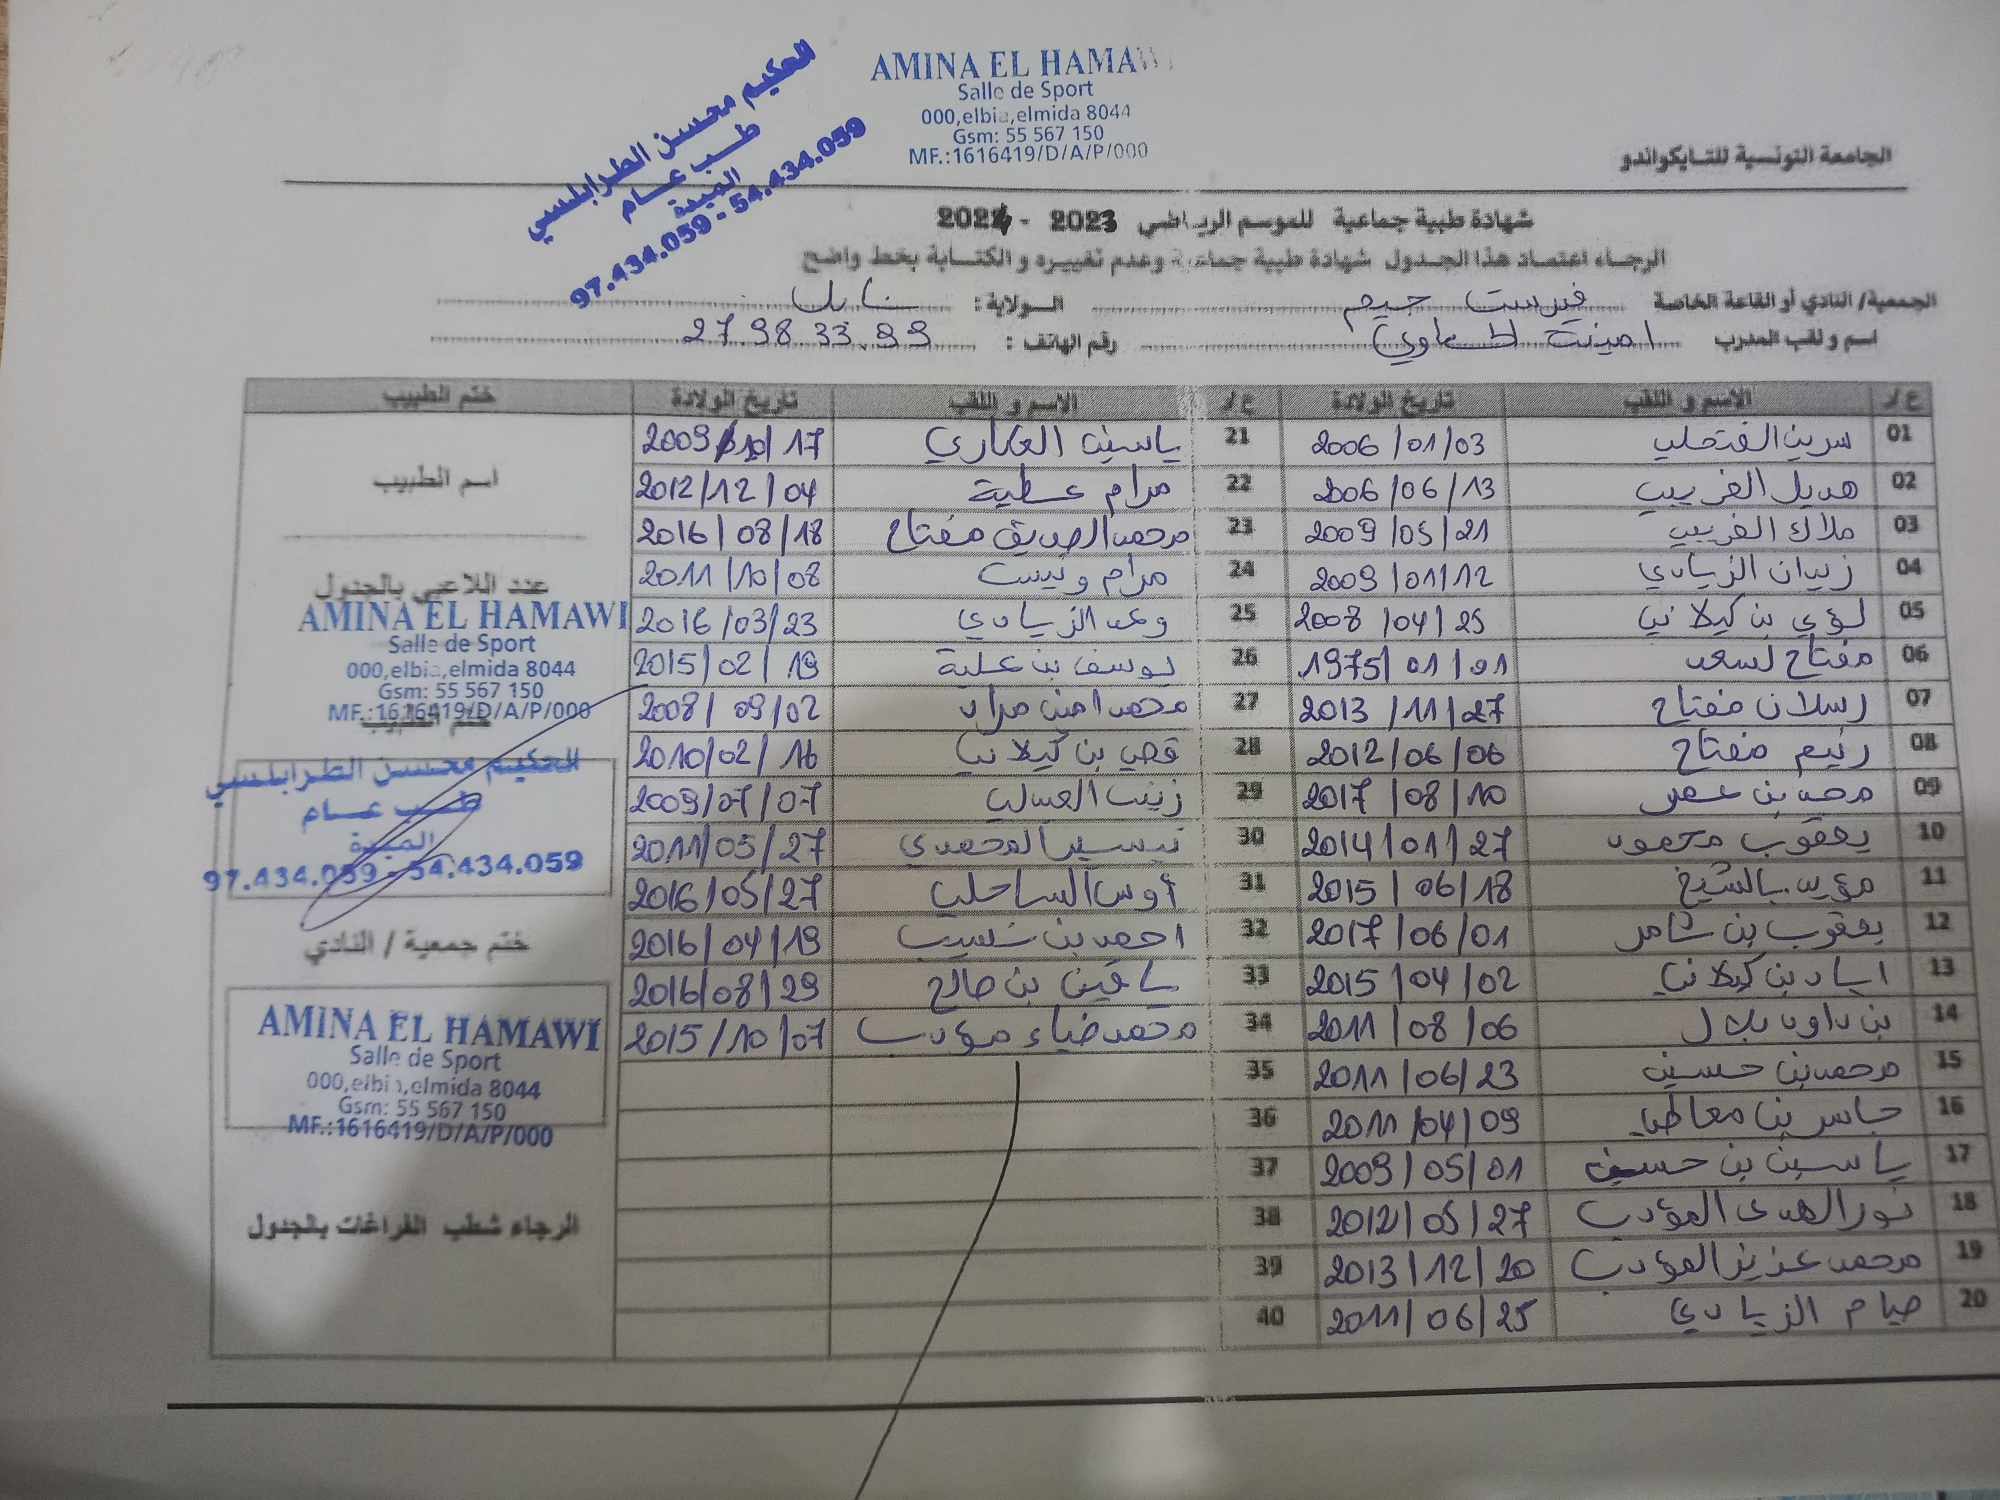 AMINA EL HAMAWI
Salle de Sport
000,elbia,elmida 8044
Gsm: 55 567 150
MF.:1616419/D/A/P/000
الحكيم محسن الطرابلسي
طب عام
الميدة
97.434.059 - 54.434.059
الجامعة التونسية للتايكواندو
شهادة طبية جماعية للموسم الرياضي 2023 - 2024
الرجاء اعتماد هذا الجدول شهادة طبية جماعية وعدم تغييره و الكتابة بخط واضح
الجمعية/ النادي أو القاعة الخاصة فيرست جيم الولاية : نابل
اسم و لقب المدرب امينة الحماوي رقم الهاتف : 27.98.33.99
ع/ر الاسم و اللقب تاريخ الولادة ع/ر الاسم و اللقب تاريخ الولادة ختم الطبيب
01 سرين الفتحلي 2006/01/03 21 ياسين العكاري 2009/10/17
02 هديل الغريبي 2006/06/13 22 مرام عطية 2012/12/04
03 ملاك الغريبي 2009/05/21 23 محمد الصديق مفتاح 2016/08/18
04 زيدان الزيادي 2009/01/12 24 مرام ونيس 2011/10/08
05 لؤي بن كيلاني 2008/04/25 25 وعد الزيادي 2016/03/23
06 مفتاح لسعد 1975/01/01 26 يوسف بن علية 2015/02/19
07 رسلان مفتاح 2013/11/27 27 محمد امين مراد 2008/09/02
08 رنيم مفتاح 2012/06/06 28 قصي بن كيلاني 2010/02/16
09 محمد بن عمر 2017/08/10 29 زينب العسلي 2009/07/07
10 يعقوب محمود 2014/01/27 30 تيسير المحمدي 2011/05/27
11 مؤيد بالشيخ 2015/06/18 31 أوس الساحلي 2016/05/27
12 يعقوب بن ثامر 2017/06/01 32 احمد بن نسيب 2016/04/19
13 اياد بن كيلاني 2015/04/02 33 ياقين بن صالح 2016/08/29
14 بن داود بلال 2011/08/06 34 محمد ضياء مؤدب 2015/10/07
15 محمد بن حسين 2011/06/23 35
16 جاسر بن معاطي 2011/04/09 36
17 ياسين بن حسين 2009/05/01 37
18 نور الهدى المؤدب 2012/05/27 38
19 محمد عزيز المؤدب 2013/12/20 39
20 صيام الزيادي 2011/06/25 40
اسم الطبيب
عدد اللاعبي بالجدول
AMINA EL HAMAWI
Salle de Sport
000,elbia,elmida 8044
Gsm: 55 567 150
MF.:1616419/D/A/P/000
ختم الطبيب
الحكيم محسن الطرابلسي
طب عام
الميدة
97.434.059 - 54.434.059
ختم جمعية / النادي
AMINA EL HAMAWI
Salle de Sport
000,elbia,elmida 8044
Gsm: 55 567 150
MF.:1616419/D/A/P/000
الرجاء شطب الفراغات بالجدول